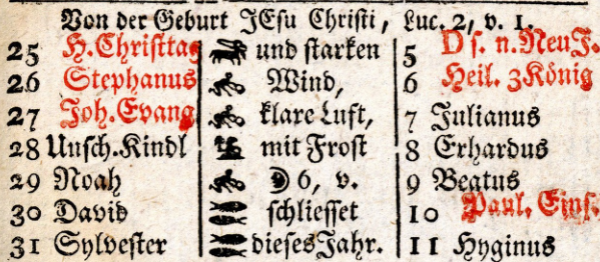 Von der Geburt JEsu Christi, Luc. 2, v. 1.
25 H. Christtag und starken 5 D s. n. Neu J.
26 Stephanus Wind, 6 Heil. 3 König
27 Joh. Evang. klare Luft, 7 Julianus
28 Unsch. Kindl mit Frost 8 Erhardus
29 Noah ☽ 6, v. 9 Beatus
30 David schliesset 10 Paul. Eins.
31 Sylvester dieses Jahr. 11 Hyginus